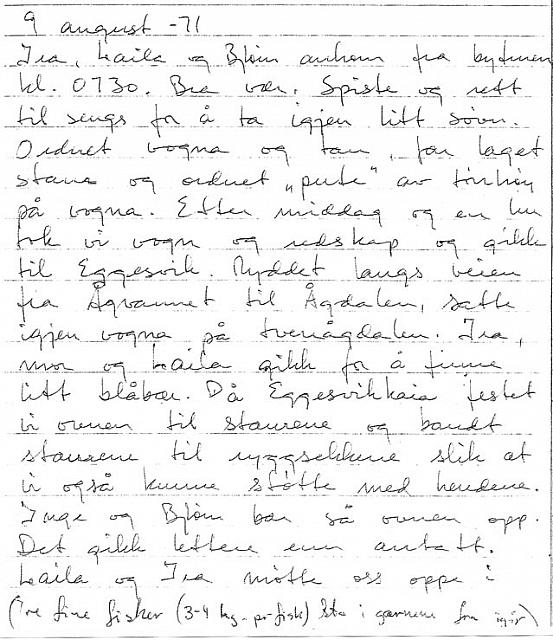 9 august -71
Ira, Laila og Bjørn ankom fra byturen
kl. 0730. Bra vær. Spiste og rett
til sengs for å ta igjen litt søvn.
Ordnet vogna og tau, far laget
staur og ordnet „pute" av tørrhøy
på vogna. Etter middag og en lur
tok vi vogn og redskap og gikk
til Eggesvik. Ryddet langs veien
fra Ågvannet til Ågdalen, satte
igjen vogna på tverrågdalen. Ira,
mor og Laila gikk for å finne
litt blåbær. På Eggesvikkaia festet
vi ovnen til staurene og bandt
staurene til ryggsekkene slik at
vi også kunne støtte med hendene.
Inge og Bjørn bar så ovnen opp.
Det gikk lettere enn antatt.
Laila og Ira møtte oss oppe i
(Tre fine fisker (3-4 kg. pr fisk) sto i garnene fra igår)